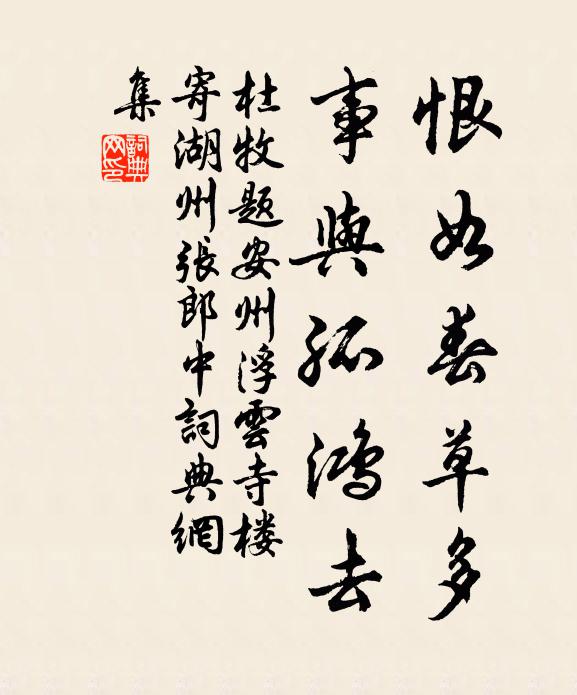 恨如春草多
事與孤鴻去
杜牧题安州浮雲寺楼
寄湖州張郎中詞典網
集
詞典
网印